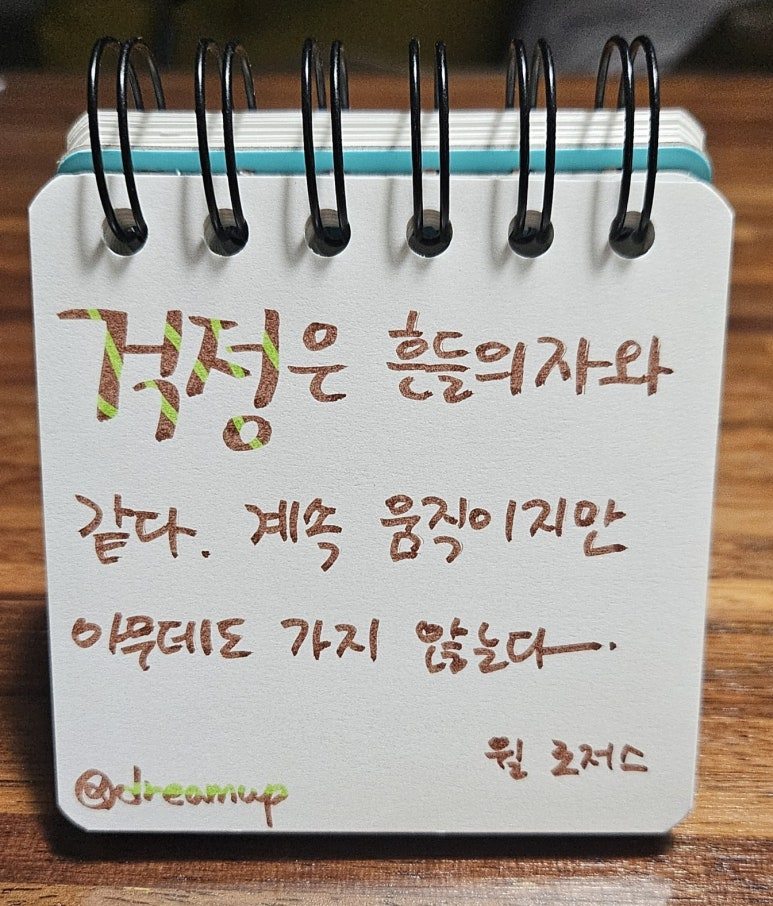 걱정은 흔들의자와
같다. 계속 움직이지만
아무데도 가지 않는다.
윌 로저스
@dreamup